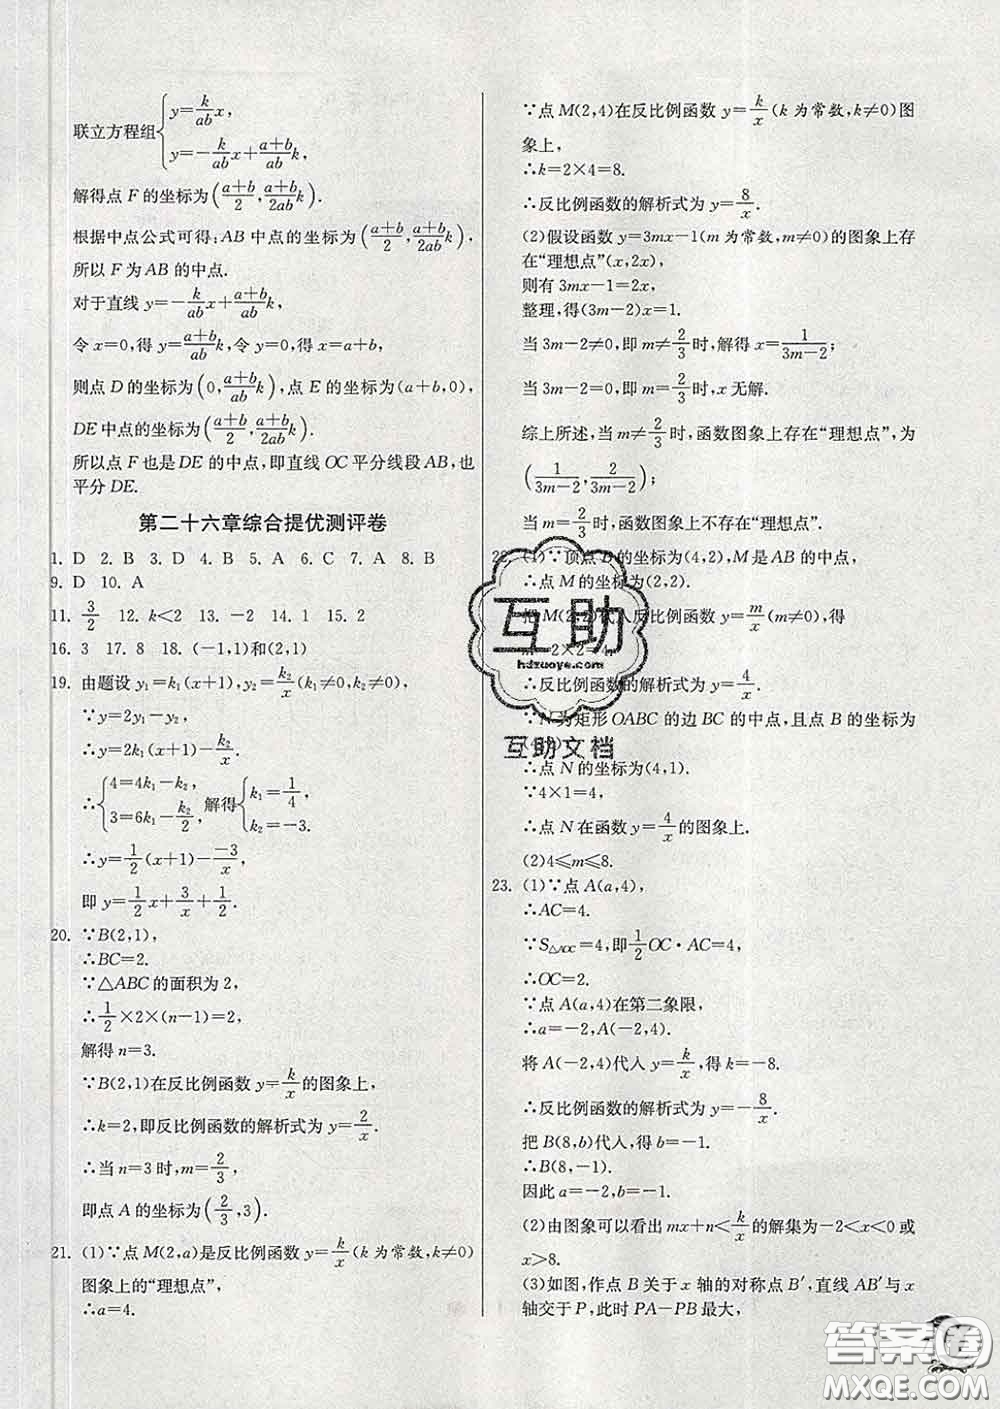 联立方程组{y=k/ab x,
y=-k/ab x+(a+b)/ab k,
解得点 F 的坐标为((a+b)/2,(a+b)/2ab k).
根据中点公式可得:AB 中点的坐标为((a+b)/2,(a+b)/2ab k),
所以 F 为 AB 的中点.
对于直线 y=-k/ab x+(a+b)/ab k,
令 x=0,得 y=(a+b)/ab k,令 y=0,得 x=a+b,
则点 D 的坐标为(0,(a+b)/ab k),点 E 的坐标为(a+b,0),
DE 中点的坐标为((a+b)/2,(a+b)/2ab k).
所以点 F 也是 DE 的中点,即直线 OC 平分线段 AB,也
平分 DE.
第二十六章综合提优测评卷
1. D 2. B 3. D 4. B 5. A 6. C 7. A 8. B
9. D 10. A
11. 3/2 12. k<2 13. -2 14. 1 15. 2
16. 3 17. 8 18. (-1,1)和(2,1)
19. 由题设 y₁=k₁(x+1),y₂=k₂/x(k₁≠0,k₂≠0),
∵y=2y₁-y₂,
∴y=2k₁(x+1)-k₂/x.
∴{4=4k₁-k₂, 3=6k₁-k₂/2, 解得{k₁=1/4, k₂=-3.
∴y=1/2(x+1)--3/x.
即 y=1/2x+3/x+1/2.
20. ∵B(2,1),
∴BC=2.
∵△ABC 的面积为 2,
∴1/2×2×(n-1)=2,
解得 n=3.
∵B(2,1)在反比例函数 y=k/x 的图象上,
∴k=2,即反比例函数的解析式为 y=2/x.
∴当 n=3 时,m=2/3,
即点 A 的坐标为(2/3,3).
21. (1)∵点 M(2,a)是反比例函数 y=k/x(k 为常数,k≠0)
图象上的“理想点”,
∴a=4.
∵点 M(2,4)在反比例函数 y=k/x(k 为常数,k≠0)图
象上,
∴k=2×4=8.
∴反比例函数的解析式为 y=8/x.
(2)假设函数 y=3mx-1(m 为常数,m≠0)的图象上存
在“理想点”(x,2x),
则有 3mx-1=2x,
整理,得(3m-2)x=1.
当 3m-2≠0,即 m≠2/3时,解得 x=1/(3m-2);
当 3m-2=0,即 m=2/3时,x 无解.
综上所述,当 m≠2/3时,函数图象上存在“理想点”,为
(1/(3m-2),2/(3m-2));
当 m=2/3时,函数图象上不存在“理想点”.
22. (1)∵顶点 B 的坐标为(4,2),M 是 AB 的中点,
∴点 M 的坐标为(2,2).
把 M(2,2)代入反比例函数 y=m/x(m≠0),得
m=2×2=4.
∴反比例函数的解析式为 y=4/x.
∵N 为矩形 OABC 的边 BC 的中点,且点 B 的坐标为
(4,2),
∴点 N 的坐标为(4,1).
∵4×1=4,
∴点 N 在函数 y=4/x的图象上.
(2)4≤m≤8.
23. (1)∵点 A(a,4),
∴AC=4.
∵S△AOC=4,即1/2OC·AC=4,
∴OC=2.
∵点 A(a,4)在第二象限,
∴a=-2,A(-2,4).
将 A(-2,4)代人 y=k/x,得 k=-8.
∴反比例函数的解析式为 y=-8/x.
把 B(8,b)代人,得 b=-1.
∴B(8,-1).
因此 a=-2,b=-1.
(2)由图象可以看出 mx+n<k/x的解集为-2<x<0 或
x>8.
(3)如图,作点 B 关于 x 轴的对称点 B′,直线 AB′与 x
轴交于 P,此时 PA-PB 最大,
互助
hdzuoye.com
互助文档
答案卷
MXQE.COM